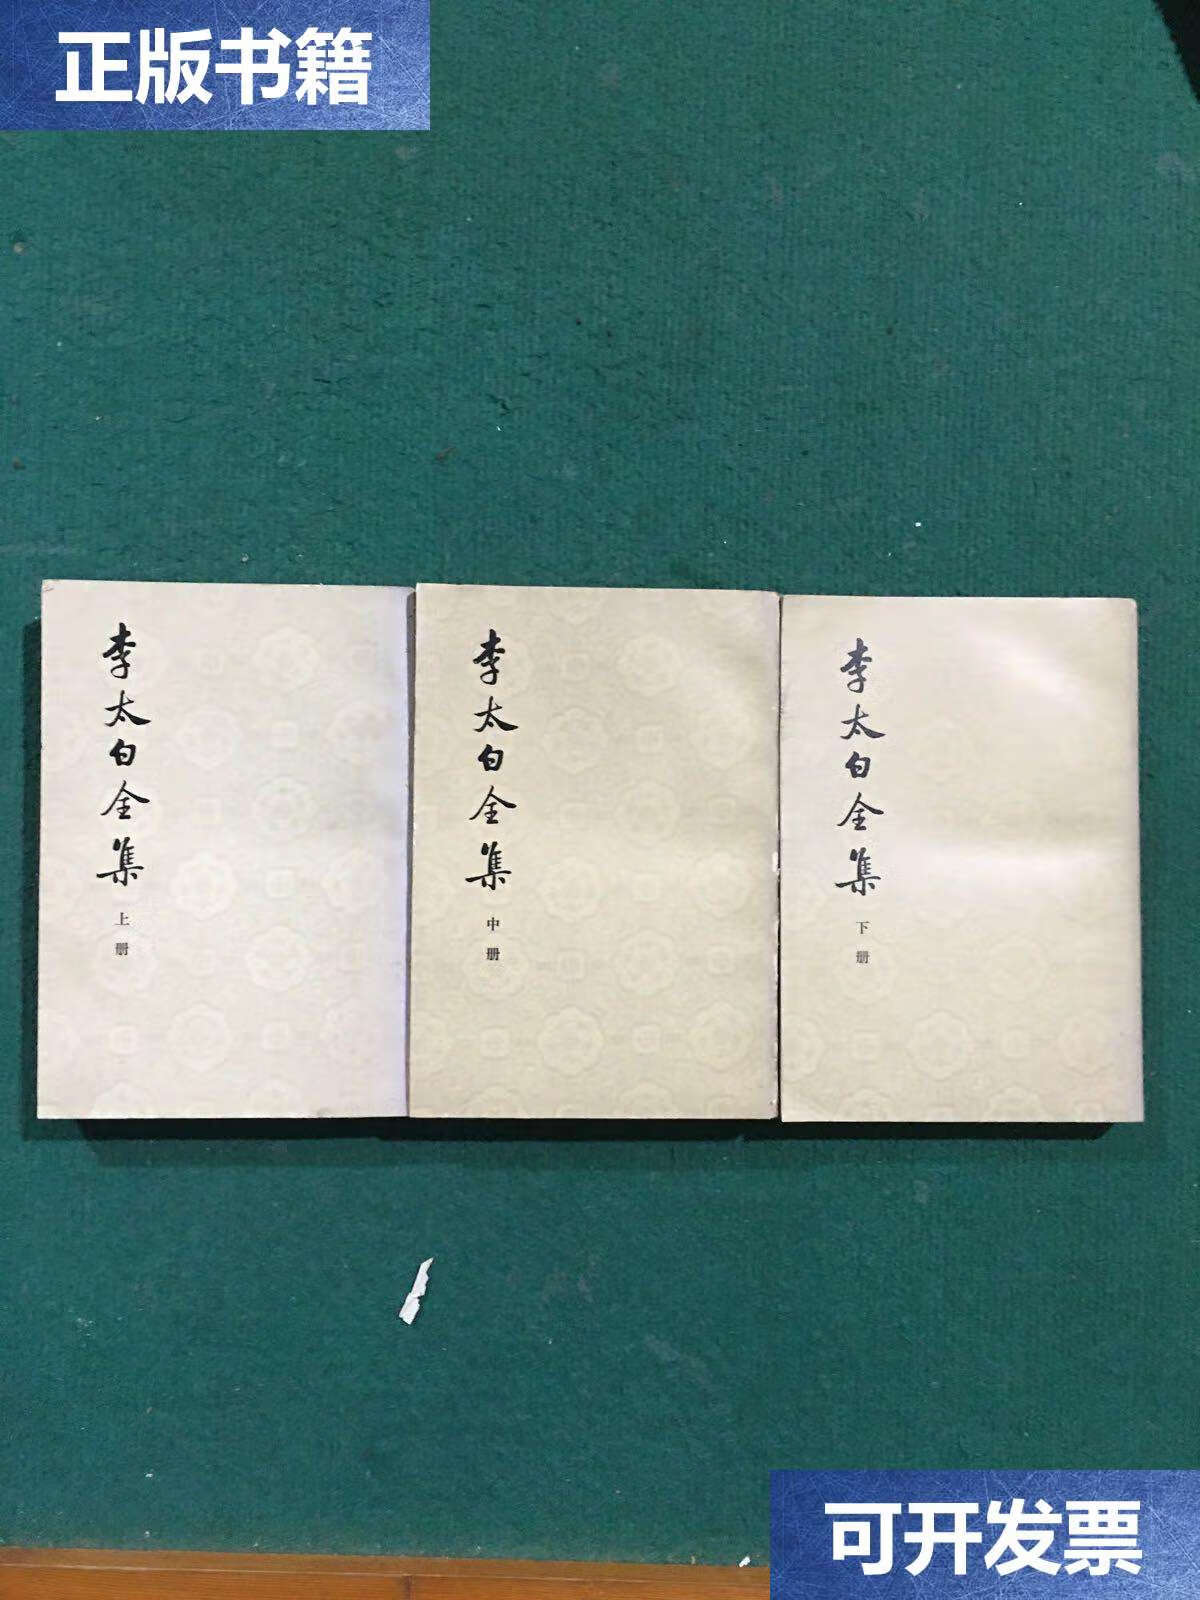 正版书籍
李太白全集
上册
李太白全集
中册
李太白全集
下册
可开发票